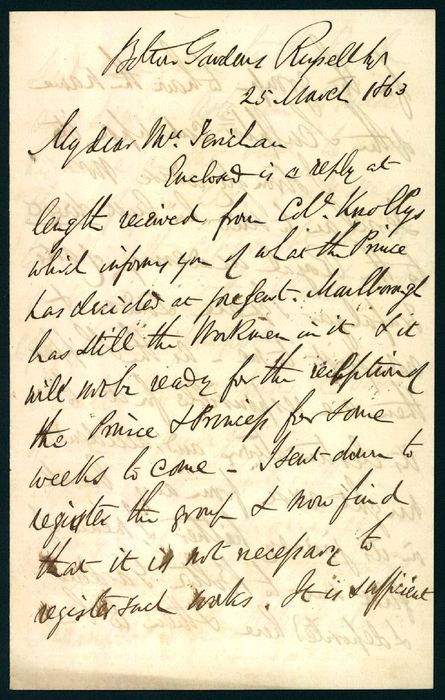 Bolton Gardens Russell Sqr
25 March 1863
My dear Mrs. Jerichau
Enclosed is a reply at
length received from Col. Knollys
which informs you of what the Prince
has decided at present. Marlborough
has still the Workmen in it & it
will not be ready for the reception of
the Prince & Princess for some
weeks to come – I sent down to
register the group & now find
that it is not necessary to
register such works. It is sufficient